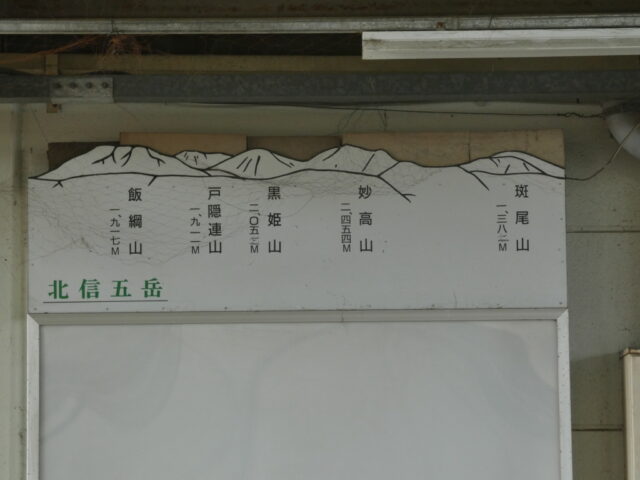 斑尾山
一、三八二M
妙高山
二、四五四M
黒姫山
二、〇五三M
戸隠連山
一、九一一M
飯綱山
一、九一七M
北信五岳